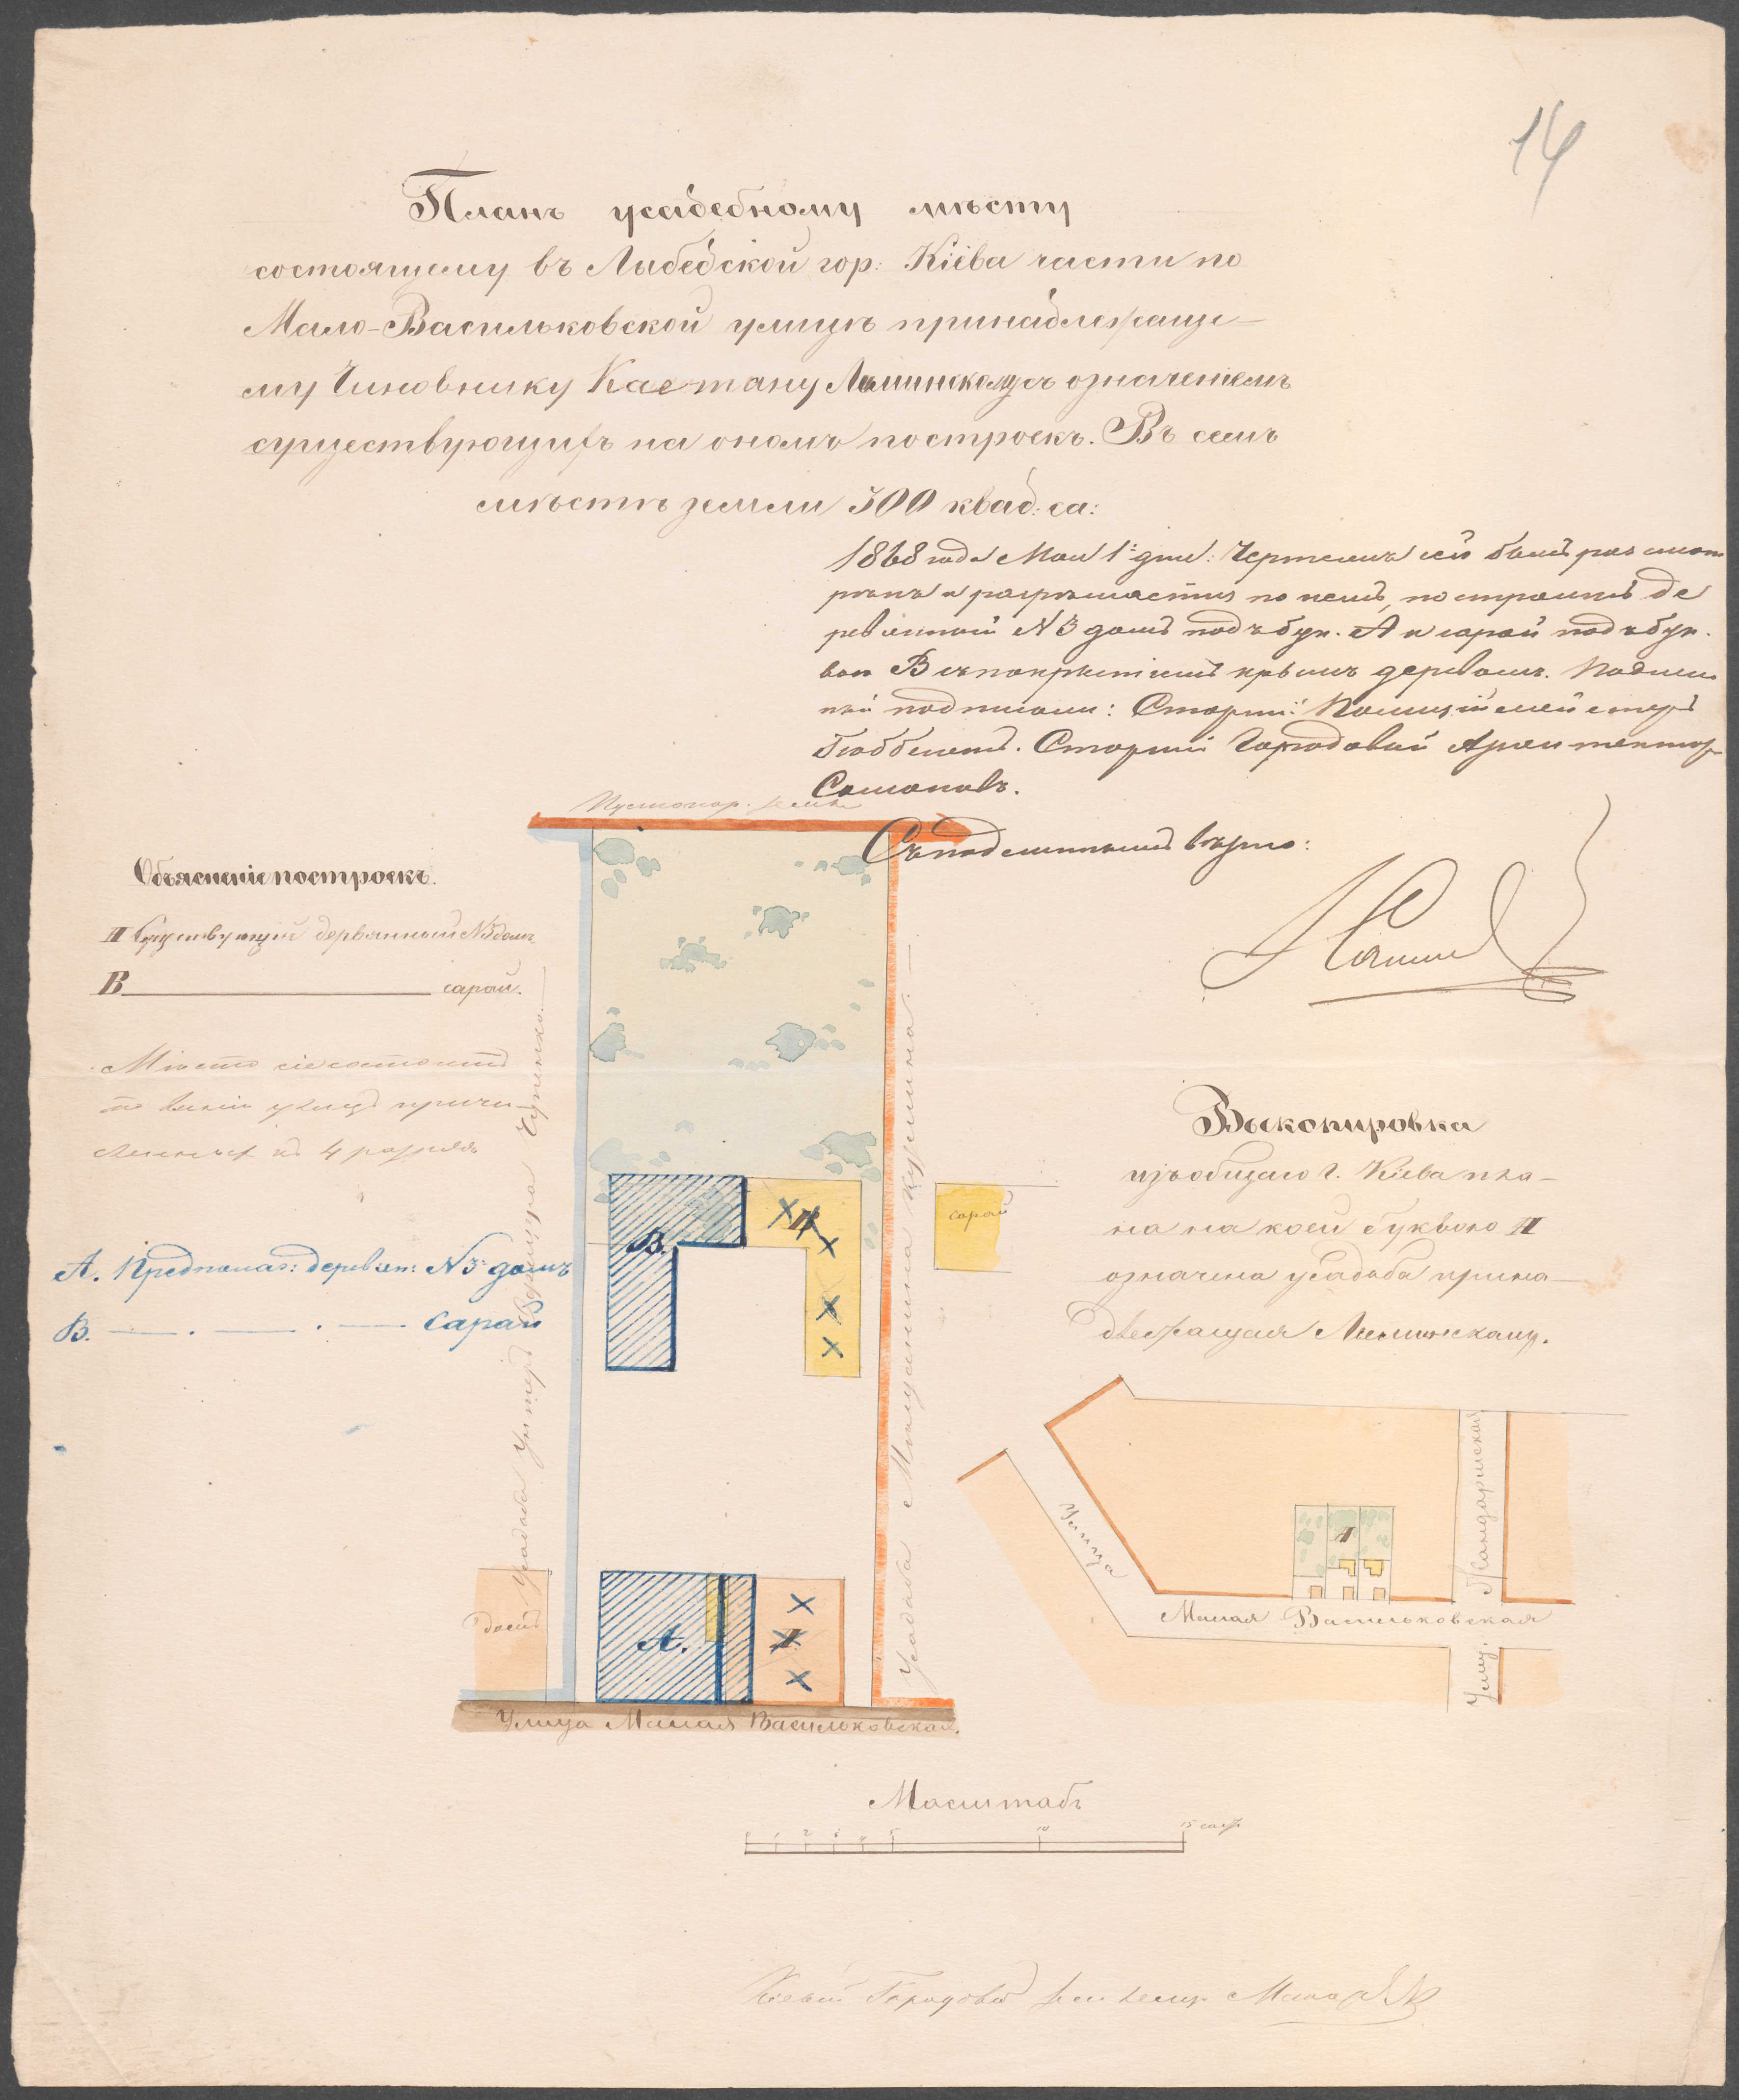 14
Планъ усадебному мѣсту
состоящему въ Лыбедской гор: Кіева части по
Мало-Васильковской улицѣ принадлежаще-
му Чиновнику Каетану съ означеніемъ
существующихъ на ономъ построекъ. Въ семъ
мѣстѣ земли 300 квад: са:
1868 года Мая 1 дня: Чертежъ сей былъ разсмот
рѣнъ и разрѣшается по немъ, построить де
ревянный N3 домъ подъ бук. А и сарай подъ бук.
вою В съ покрытіемъ крышъ деревомъ. Подлин
ный подписали: Старшій Полиціймейстеръ
Старшій Городовой Архитекторъ
Съ подлиннымъ вѣрно:
Объясненіе построекъ.
А Существующій деревянный N3 домъ
В сарай.
Мѣсто сіе состоитъ
по улицѣ причи-
къ 4 разряду
А. Предполаг: деревян: N3 домъ
В. — . — . — Сарай
земля
Усадьба Унтеръ
Усадьба Мѣщанина
В.
сарай
домъ
А.
Улица Малая Васильковская.
Выкопировка
изъ общаго г. Кіева пла-
на на коей буквою А
означена усадьба прина-
длежащая
Улица
А
Жандармская
Малая Васильковская
Улиц.
Масштабъ
1 2 3 4 5 10 15 саж.